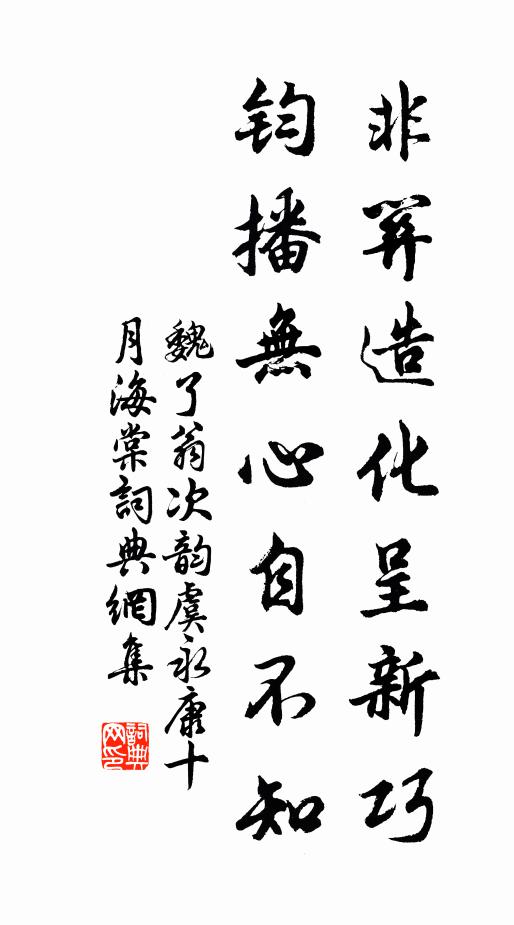 非關造化呈新巧
钧播無心自不知
魏了翁次韵虞永康十
月海棠詞典網集
詞典网印